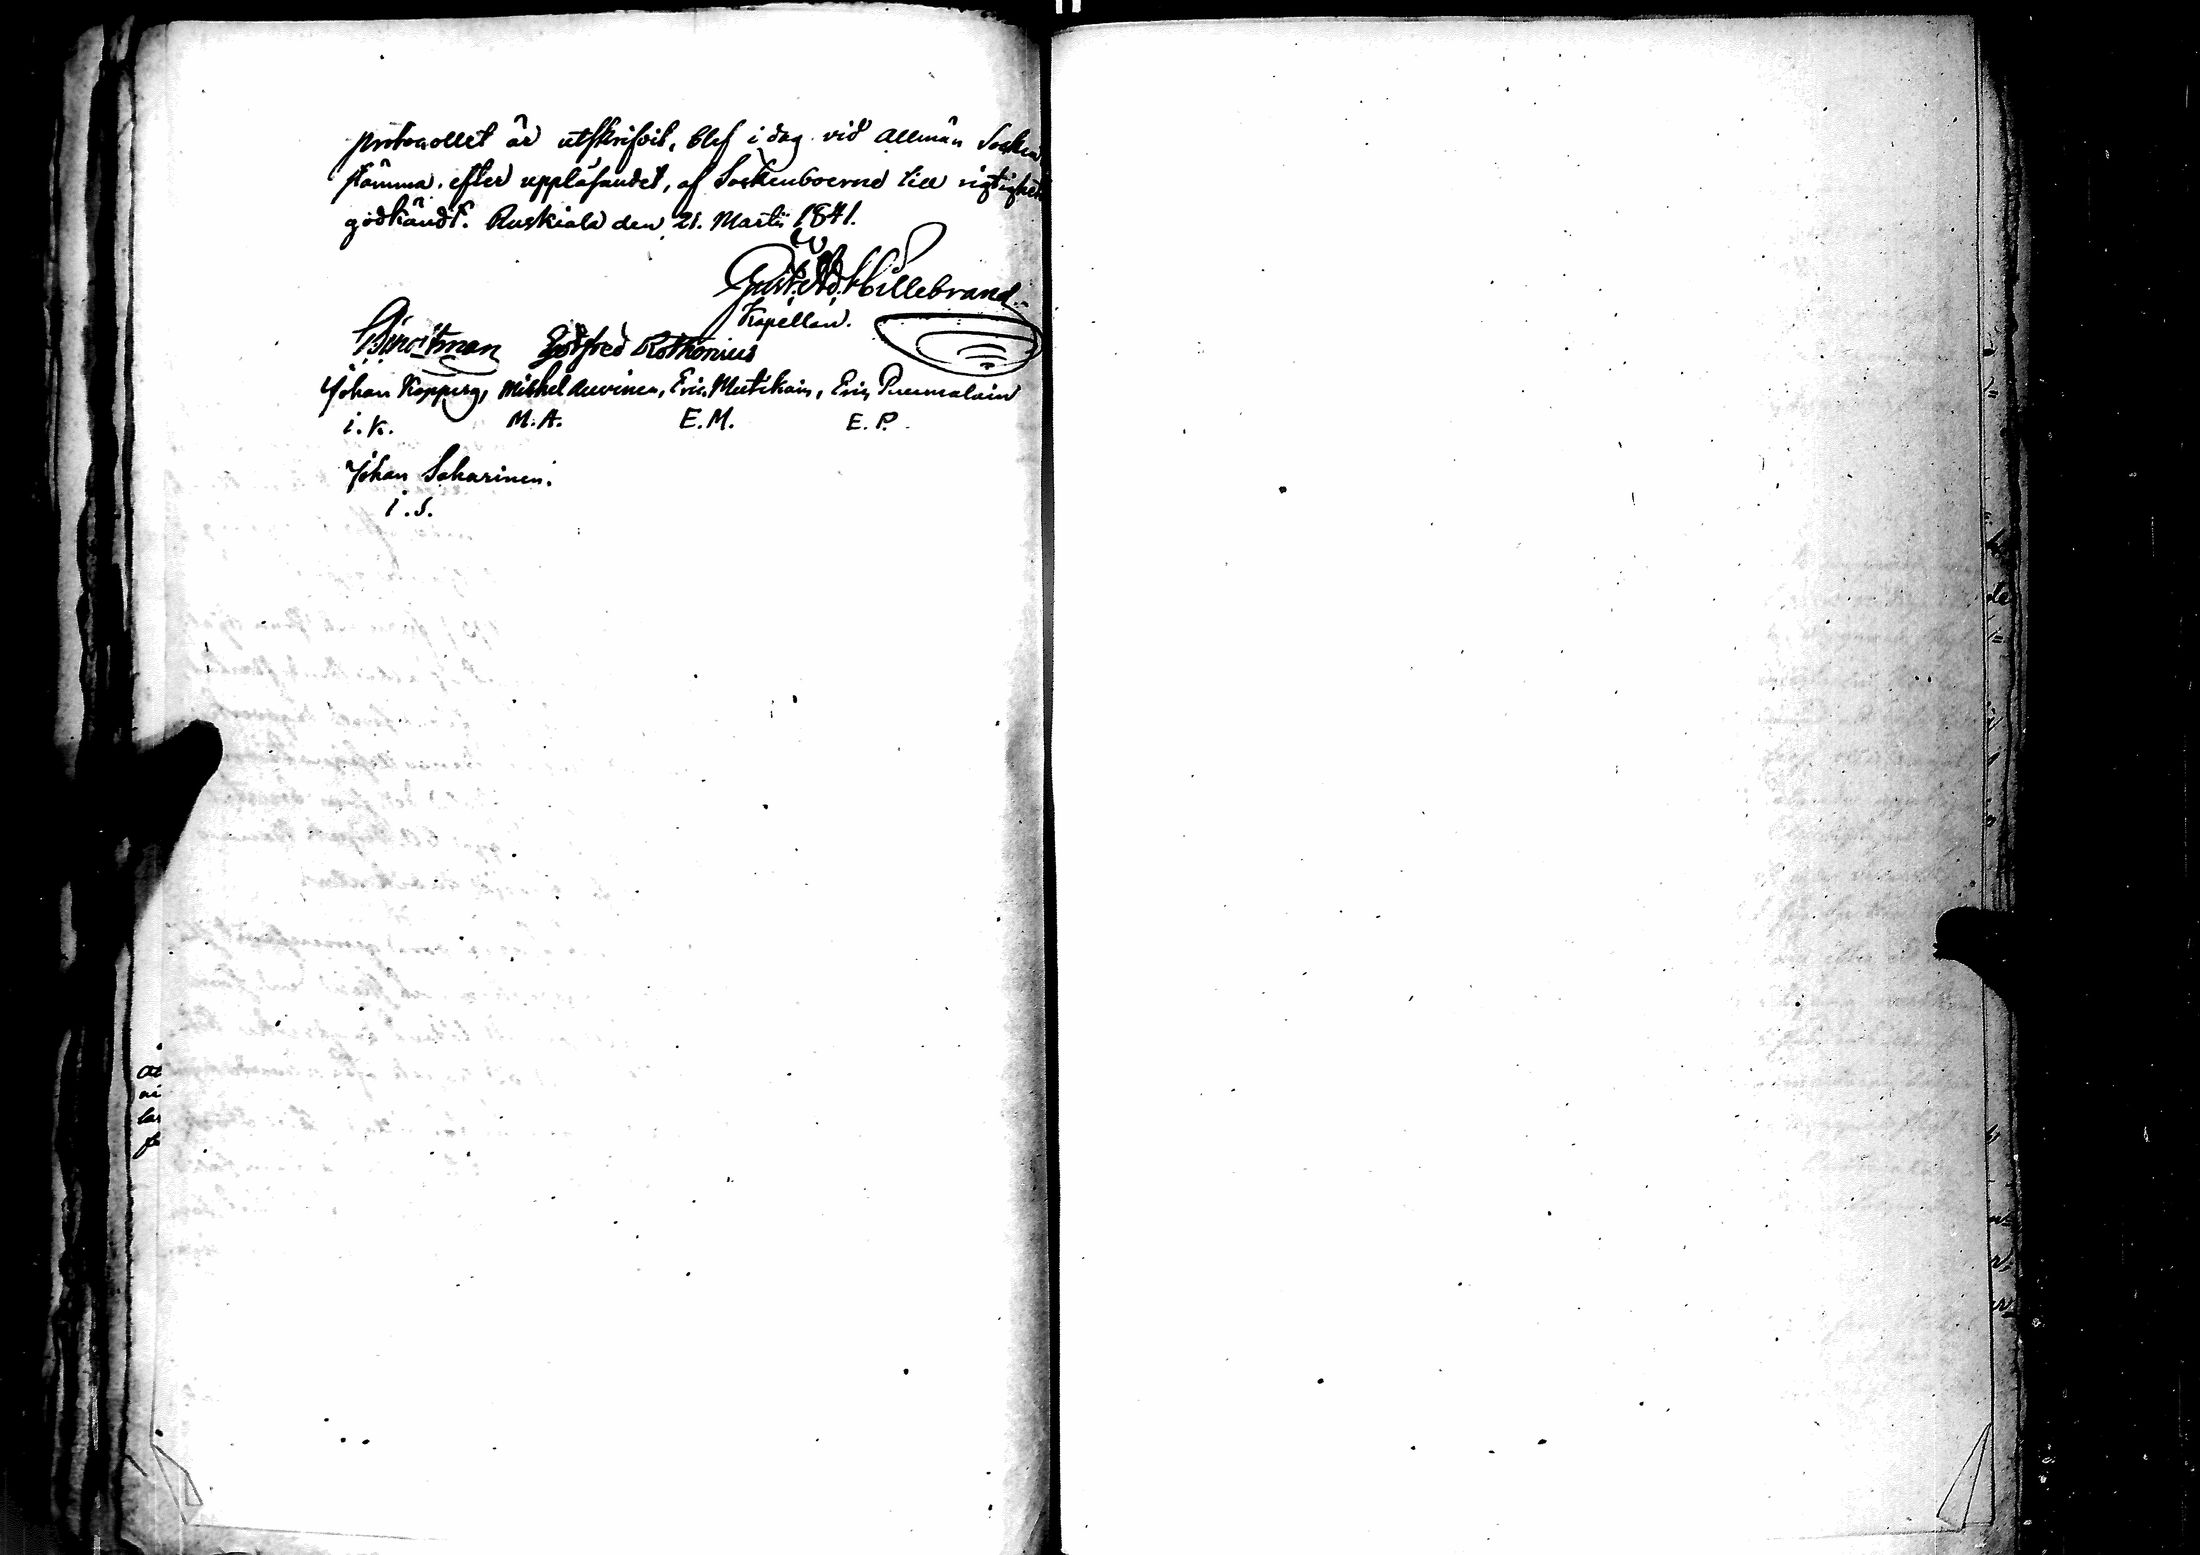 protocollet är utskrifvit, blef i dag vid allmän Socken
stämma, efter uppläsandet, af Sockenboerne till rigtighet
godkändt. Ruskiala den 21. Martii 1841.
Gust. Ad. Hillebrand.
Kapellan.
Gotfred Rothonius
Johan Kopperg, Mickel Auvinen, Eric Mutikain, Eric Puumalain
i. K. M. A. E. M. E. P.
Johan Saharinen.
i. S.